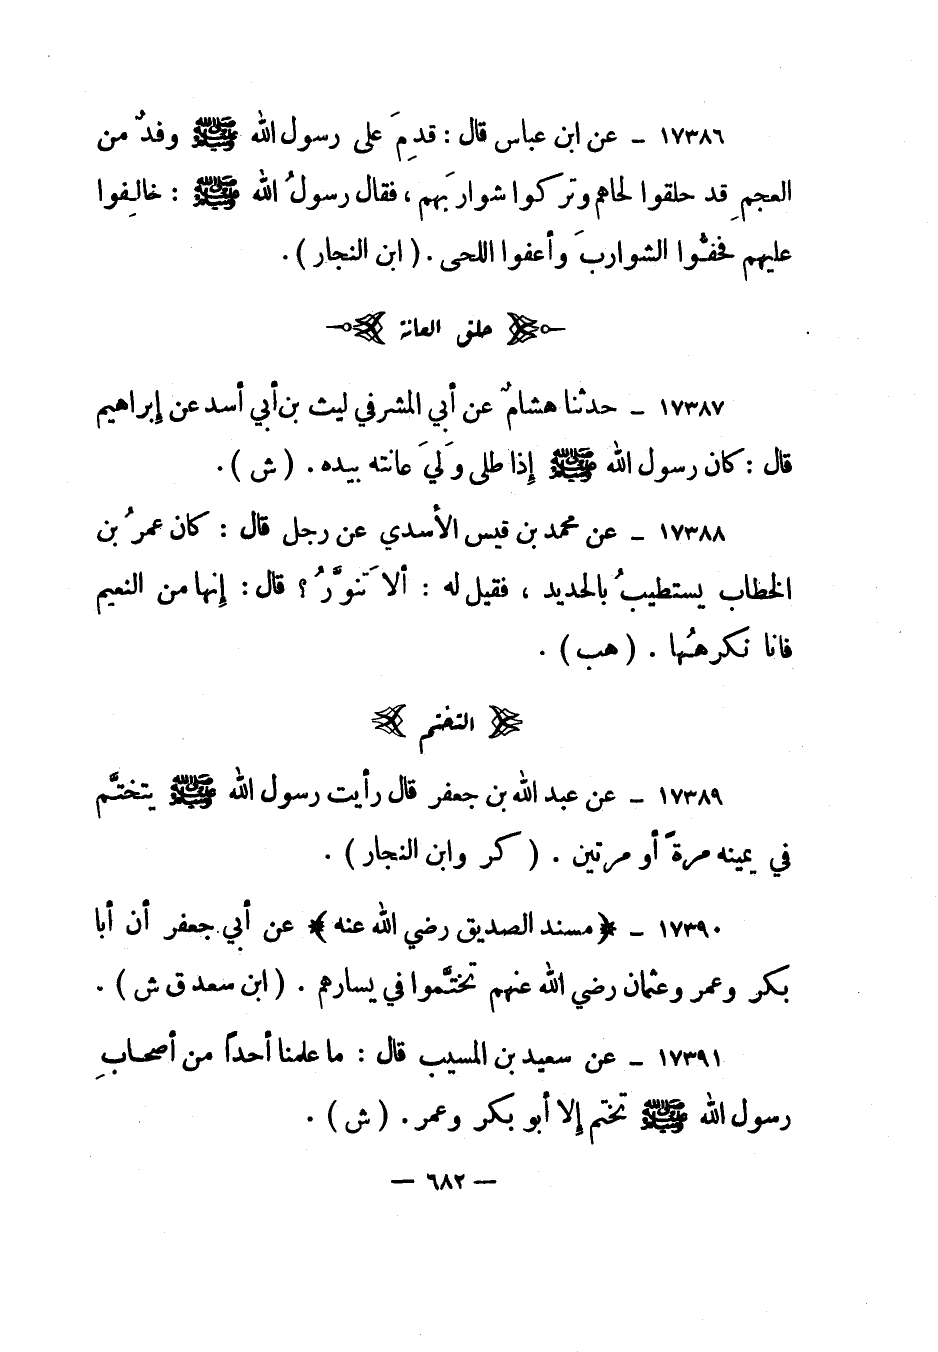 ١٧٣٨٦ – عن ابن عباس قال : قدمَ على رسول الله ﷺ وفدٌ من
العجمِ قد حلقوا لحاهم وتركوا شواربَهم ، فقال رسولُ الله ﷺ : خالِفوا
عليهم فحفُّوا الشواربَ وأعفوا اللحى . ( ابن النجار ) .
حلق العانة
١٧٣٨٧ – حدثنا هشامٌ عن أبي المشرفي ليث بن أبي أسد عن إبراهيم
قال : كان رسول الله ﷺ إذا طلى وَليَ عانته بيده . ( ش ) .
١٧٣٨٨ – عن محمد بن قيس الأسدي عن رجل قال : كان عمرُ بن
الخطاب يستطيبُ بالحديد ، فقيل له : ألا تَنوَّرُ ؟ قال : إنها من النعيم
فانا نكرهُها . ( هب ) .
التختم
١٧٣٨٩ – عن عبد الله بن جعفر قال رأيت رسول الله ﷺ يتختَّم
في يمينه مرةً أو مرتين . ( كر وابن النجار ) .
١٧٣٩٠ – ﴿ مسند الصديق رضي الله عنه ﴾ عن أبي جعفر أن أبا
بكر وعمر وعثمان رضي الله عنهم تختَّموا في يسارهم . ( ابن سعد ق ش ) .
١٧٣٩١ – عن سعيد بن المسيب قال : ما علمنا أحداً من أصحابِ
رسول الله ﷺ تختم إلا أبو بكر وعمر . ( ش ) .
– ٦٨٢ –